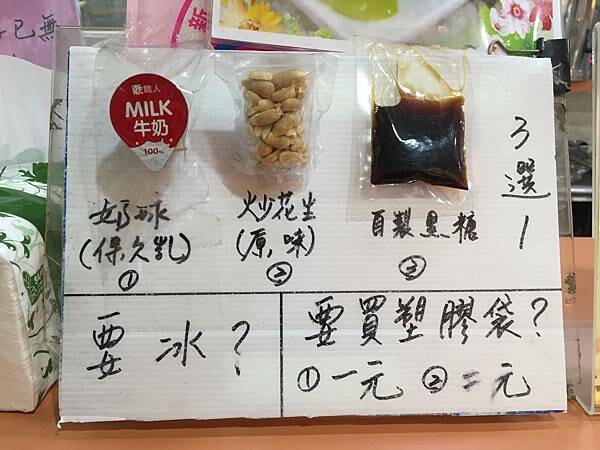 新
已無
職人
MILK
牛奶
100%
奶球
(保久乳)
①
炒花生
(原味)
②
自製黑糖
③
3
選
1
要冰?
要買塑膠袋?
①一元 ②二元